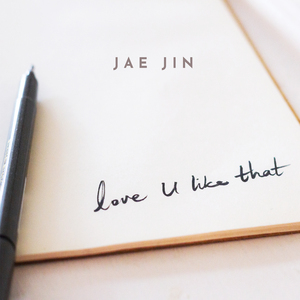 JAE JIN
love U like that